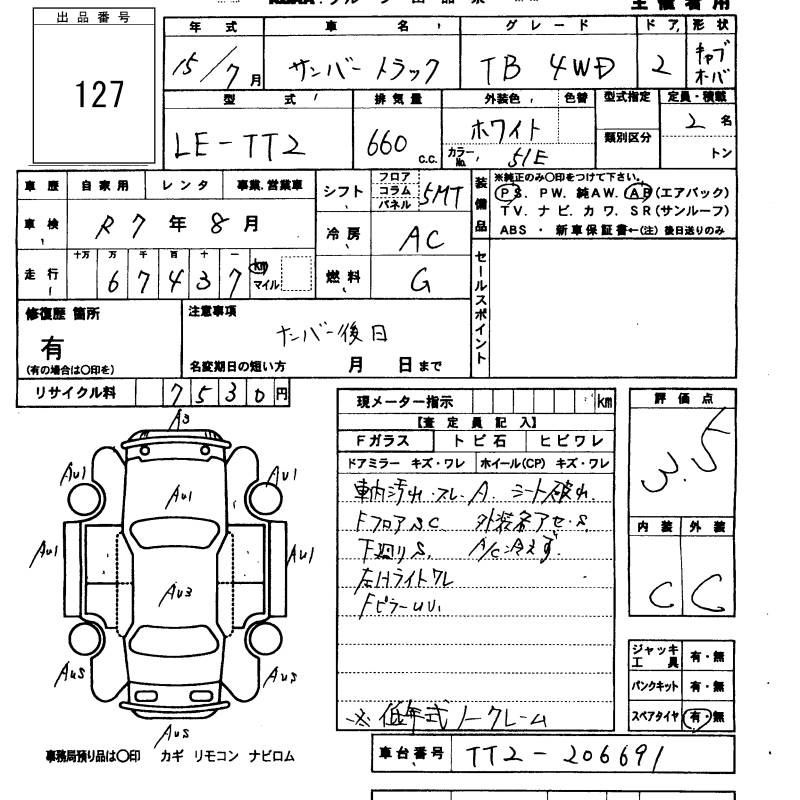 出品番号
127
年式 車名 グレード ドア 形状
15/7月 サンバートラック TB 4WD 2 キャブオーバ
型式 排気量 外装色 色替 型式指定 定員・積載
LE-TT2 660 c.c. ホワイト カラーNo. 51E 類別区分 2名 トン
車歴 自家用 レンタ 事業.営業車
車検 R7年8月
走行 十万 万 千 百 十 一
67437 km マイル
シフト フロア コラム パネル 5MT
冷房 AC
燃料 G
装備品 ※純正のみ〇印をつけて下さい。
PS. PW. 純AW. AB(エアバック)
TV. ナビ. カワ. SR(サンルーフ)
ABS ・ 新車保証書←(注) 後日送りのみ
セールスポイント
修復歴 箇所
有
(有の場合は〇印を)
注意事項
ナンバー後日
名変期日の短い方 月 日まで
リサイクル料 7530円
現メーター指示 km
【査定員記入】
Fガラス トビ石 ヒビワレ
ドアミラー キズ・ワレ ホイール(CP) キズ・ワレ
車内汚れ・スレ A. シート破れ.
FフロアSC 外装各アセ・S.
下廻りS. A/C冷えず.
左Hライトワレ
FピラーUU.
※低年式ノークレーム
評価点
3.5
内装 外装
C C
ジャッキ工具 有・無
パンクキット 有・無
スペアタイヤ 有・無
車台番号 TT2-206691
A3
AU1
AU1
AU1
AU1
AU1
AU3
AUS
AUS
AUS
事務局預り品は〇印 カギ リモコン ナビロム